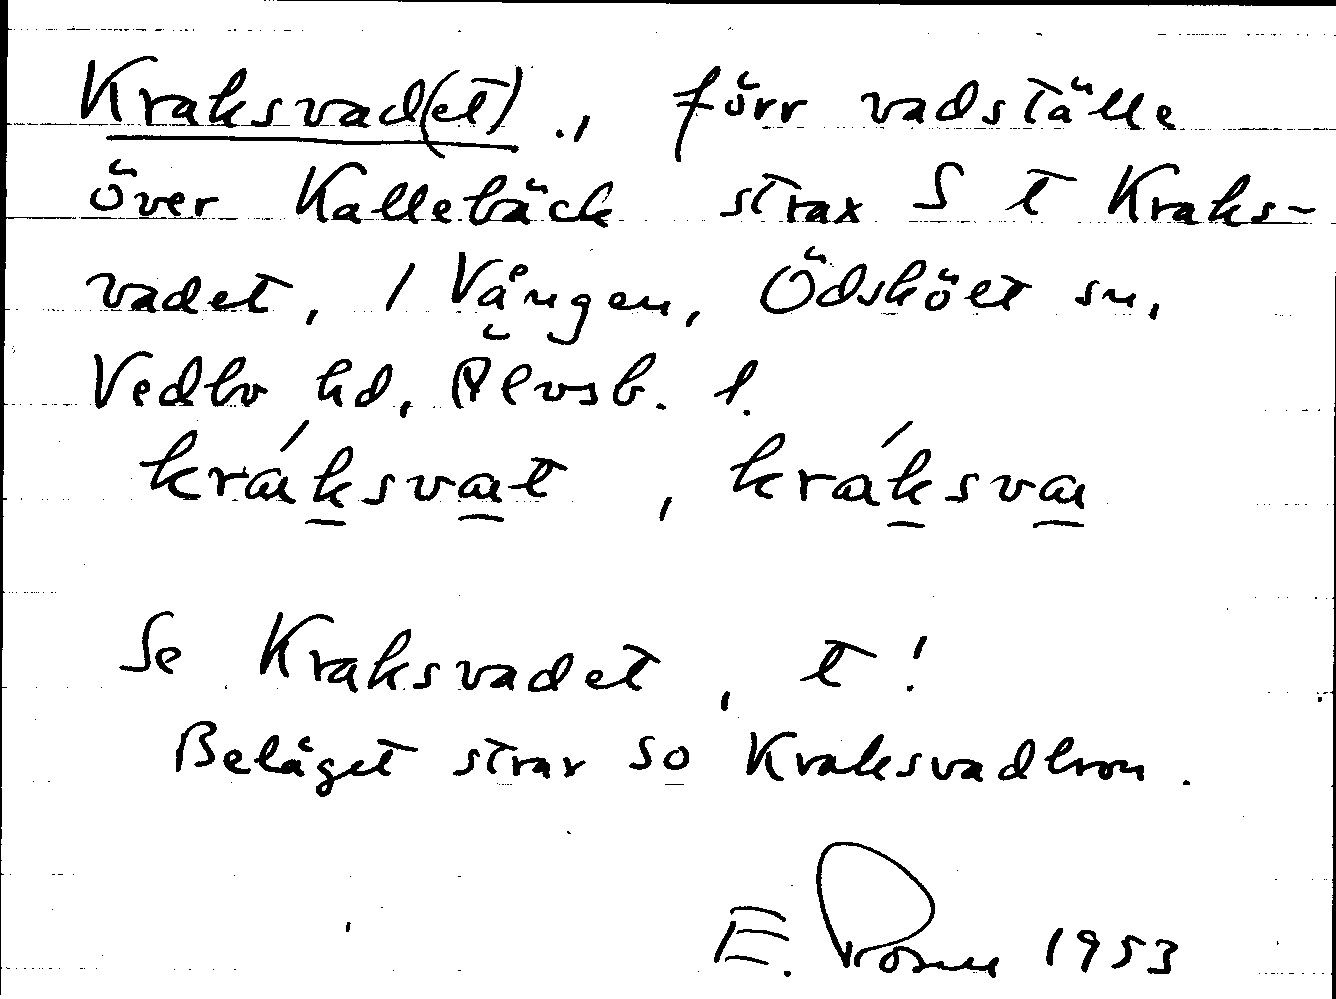 Kraksvad(et)., förr vadställe
över Kallebäck strax S t Kraks-
vadet, 1 Vången, Ödsköet sn,
Vedbo hd, Älvsb. l.
kráksvat, kráksva
Se Kraksvadet, t!
Beläget strax SO Kraksvadbron.
E. 1953